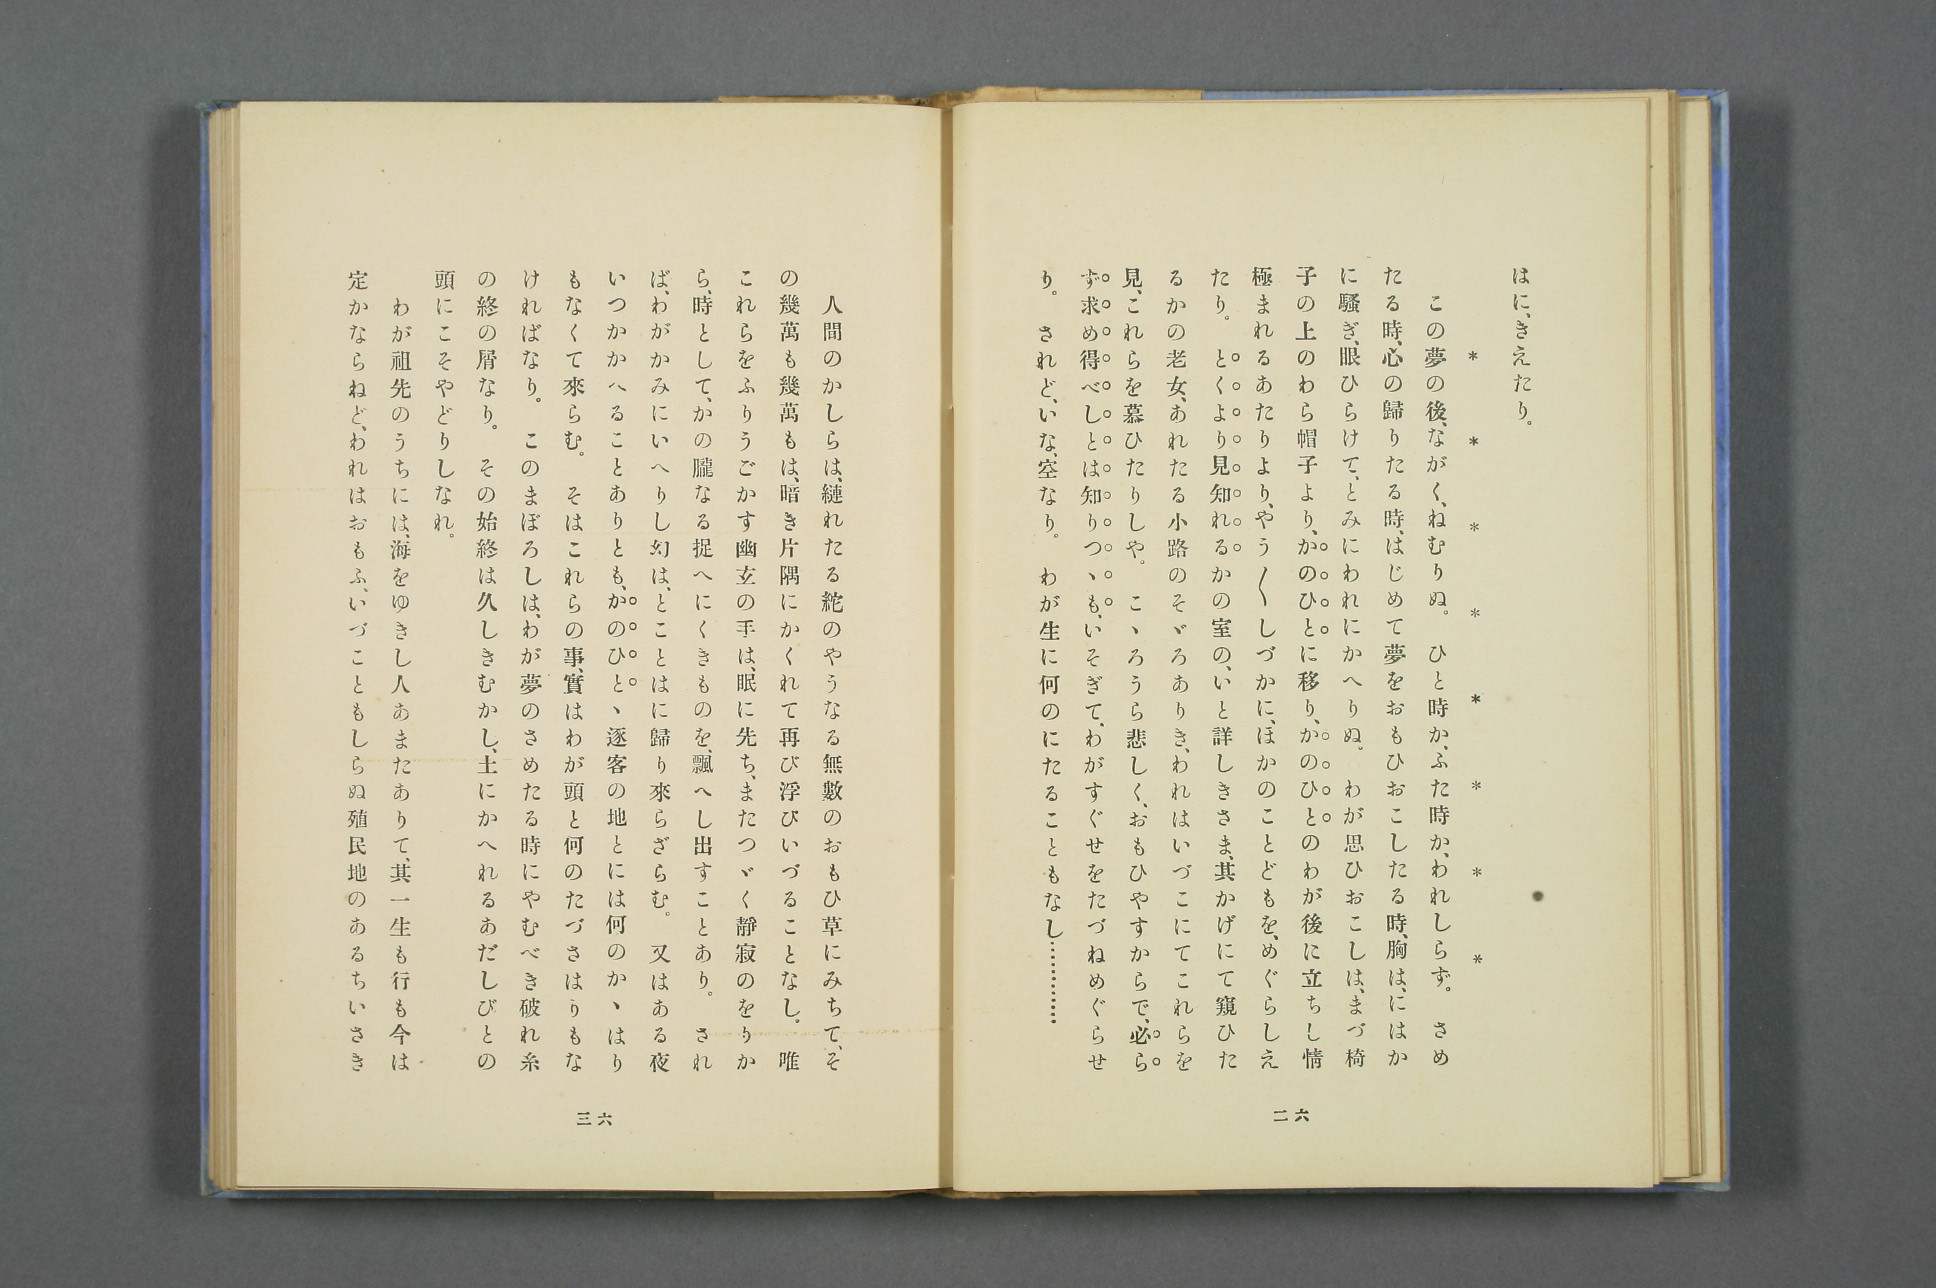 はに、きえたり。
＊＊＊＊＊＊＊＊
この夢の後、ながく、ねむりぬ。　ひと時か、ふた時か、われしらず。　さめ
たる時、心の歸りたる時、はじめて夢をおもひおこしたる時、胸は、にはか
に騷ぎ、眼ひらけて、とみにわれにかへりぬ。　わが思ひおこしは、まづ椅
子の上のわら帽子より、かのひとに移り、かのひとのわが後に立ちし情
極まれるあたりより、やう〳〵しづかに、ほかのことどもを、めぐらしえ
たり。　とくより見知れるかの室の、いと詳しきさま、其かげにて窺ひた
るかの老女、あれたる小路のそゞろありき、われはいづこにてこれらを
見、これらを慕ひたりしや。　こゝろうら悲しく、おもひやすからで、必ら
ず求め得べしとは知りつゝも、いそぎて、わがすぐせをたづねめぐらせ
り。　されど、いな、空なり。　わが生に何のにたることもなし…………
六二
人間のかしらは、縺れたる絁のやうなる無數のおもひ草にみちて、そ
の幾萬も幾萬もは、暗き片隅にかくれて再び浮びいづることなし。　唯
これらをふりうごかす幽玄の手は、眠に先ち、またつゞく靜寂のをりか
ら、時として、かの朧なる捉へにくきものを、飄へし出すことあり。　され
ば、わがかみにいへりし幻は、とことはに歸り來らざらむ。　又はある夜
いつかかへることありとも、かのひとゝ逐客の地とには何のかゝはり
もなくて來らむ。　そはこれらの事、實はわが頭と何のたづさはりもな
ければなり。　このまぼろしは、わが夢のさめたる時にやむべき破れ糸
の終の屑なり。　その始終は久しきむかし、土にかへれるあだしびとの
頭にこそやどりしなれ。
わが祖先のうちには、海をゆきし人あまたありて、其一生も行も今は
定かならねど、われはおもふ、いづこともしらぬ殖民地のあるちいさき
六三